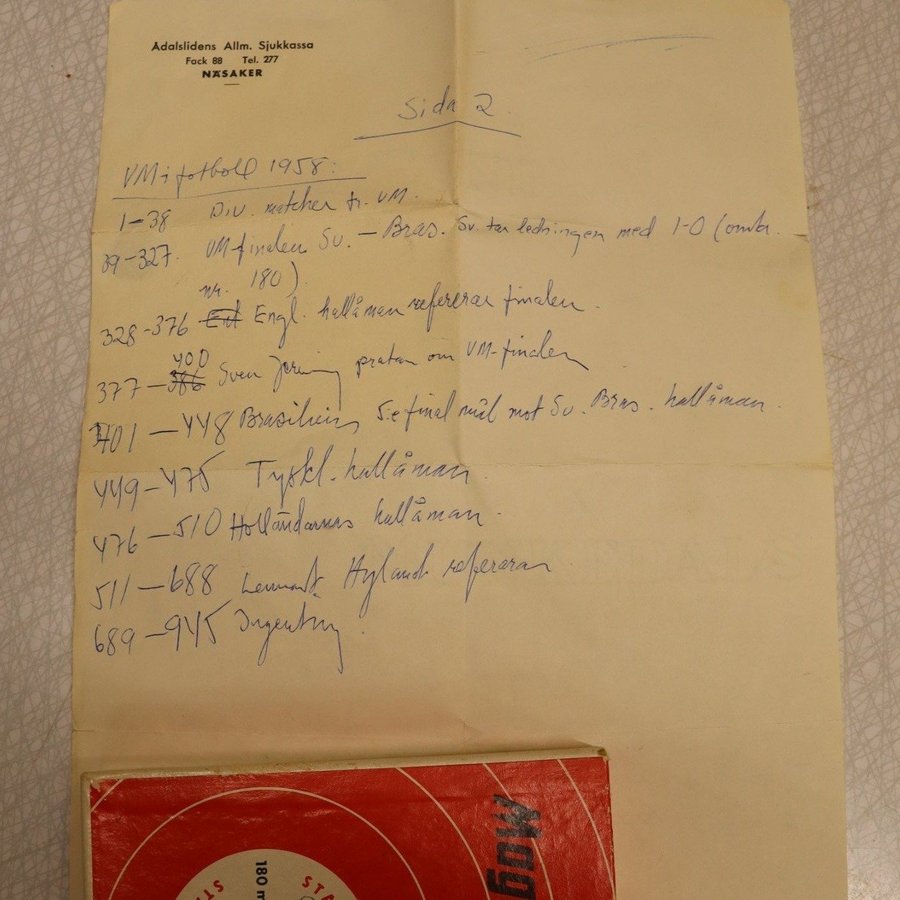 Ådalslidens Allm. Sjukkassa
Fack 88 Tel. 277
NÄSÅKER
Sida 2.
VM i fotboll 1958:
1-38 Div. matcher fr. VM.
39-327. VM-finalen Sv. - Bras. Sv. tar ledningen med 1-0 (omkr.
nr. 180).
328-376 Engl. hallåman refererar finalen.
400
377- 386 Sven Jerring pratar om VM-finalen
401-448 Brasiliens 5:e final mål mot Sv. Bras. hallåman.
449-475 Tyskl. hallåman
476-510 Holländarnas hallåman.
511-688 Lennart Hyland refererar
689-945 Ingenting.
Mag
180 m
STA
ST